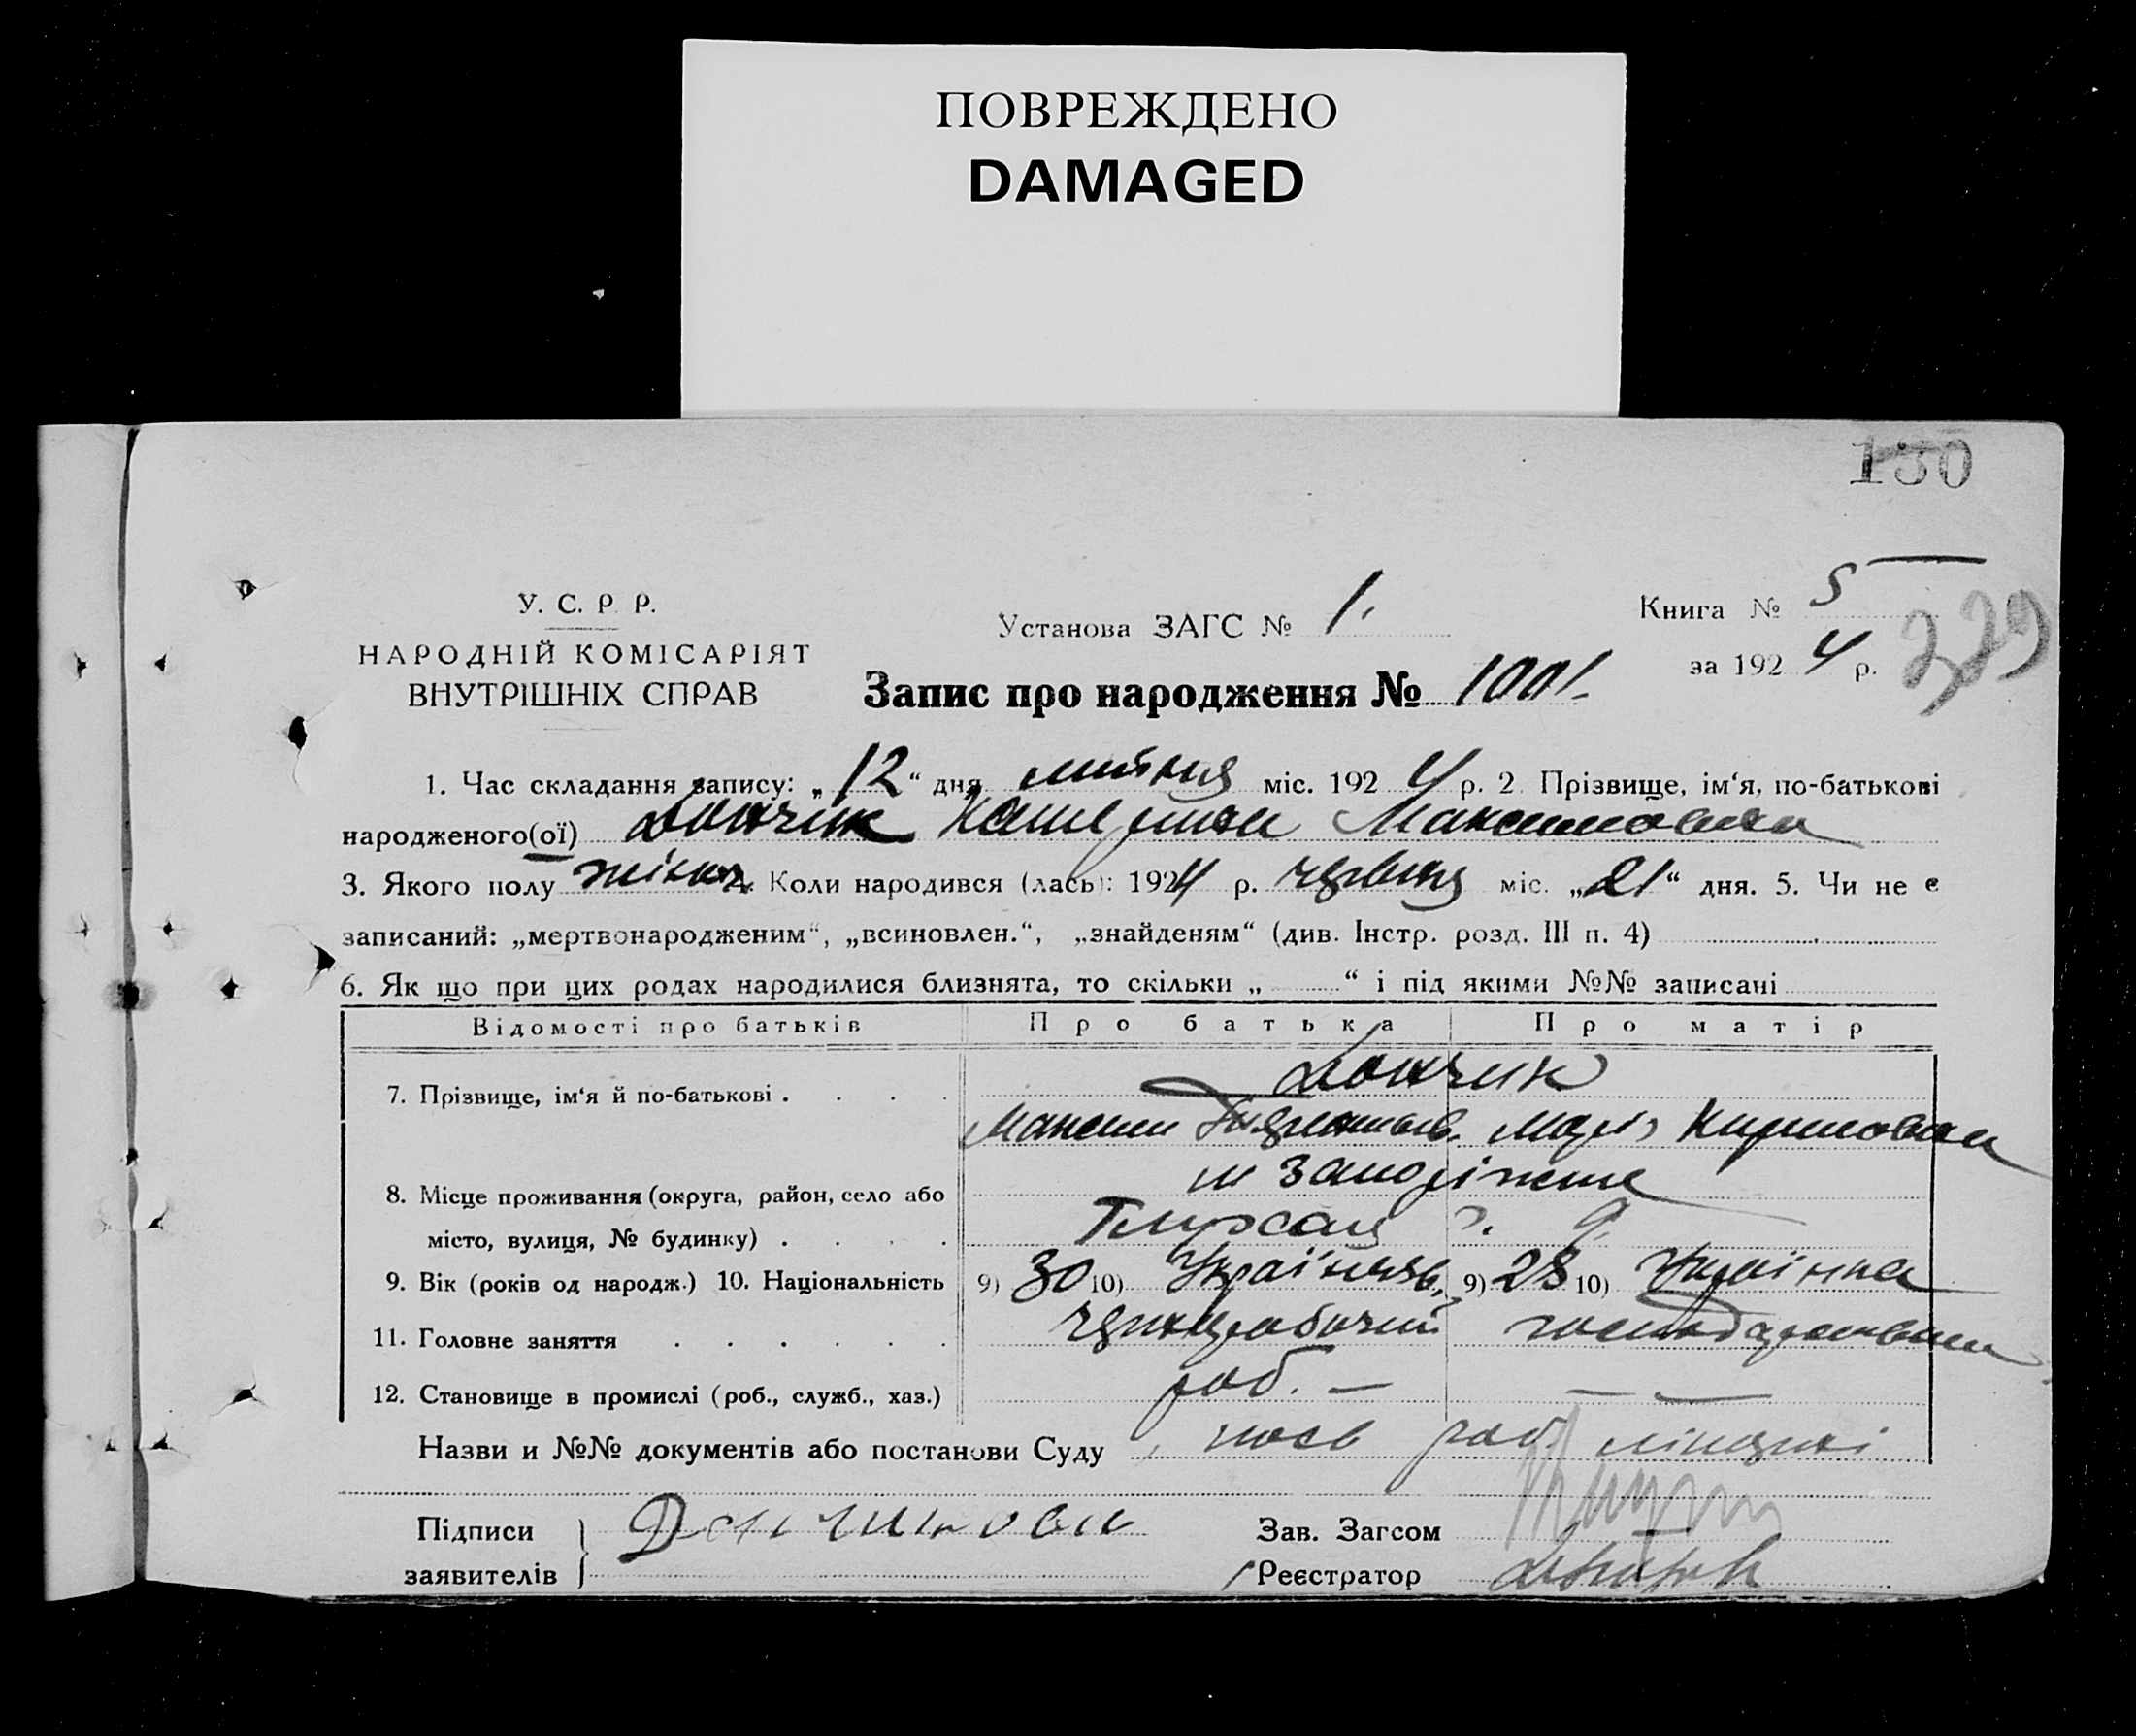 ПОВРЕЖДЕНО
DAMAGED
130
У. С. Р. Р.
НАРОДНІЙ КОМІСАРІЯТ
ВНУТРІШНІХ СПРАВ
Установа ЗАГС № 1.
Книга № 5
за 1924 р.
Запис про народження № 1001.
1. Час складання запису: „12“ дня липня міс. 1924 р. 2. Прізвище, ім‘я, по-батькові
народженого(ої) Дончик Максимовна
3. Якого полу жіноч. 4. Коли народився (лась): 1924 р. червня міс. „21“ дня. 5. Чи не є
записаний: „мертвонародженим“, „всиновлен.“, „знайденям“ (див. Інстр. розд. III п. 4)
6. Як що при цих родах народилися близнята, то скільки „ “ і під якими №№ записані
Відомості про батьків Про батька Про матір
7. Прізвище, ім‘я й по-батькові . . . . Дончик
Максим Марія
8. Місце проживання (округа, район, село або м Запоріжже
місто, вулиця, № будинку) . . . . 9
9. Вік (років од народж.) 10. Національність 9) 30 10) Українець 9) 28 10) Українка
11. Головне заняття . . . . . . чорноробочий господарств
12. Становище в промислі (роб., служб., хаз.) роб. — — —
Назви и №№ документів або постанови Суду посв
Підписи
заявителів
Дончикова
Зав. Загсом
Реєстратор